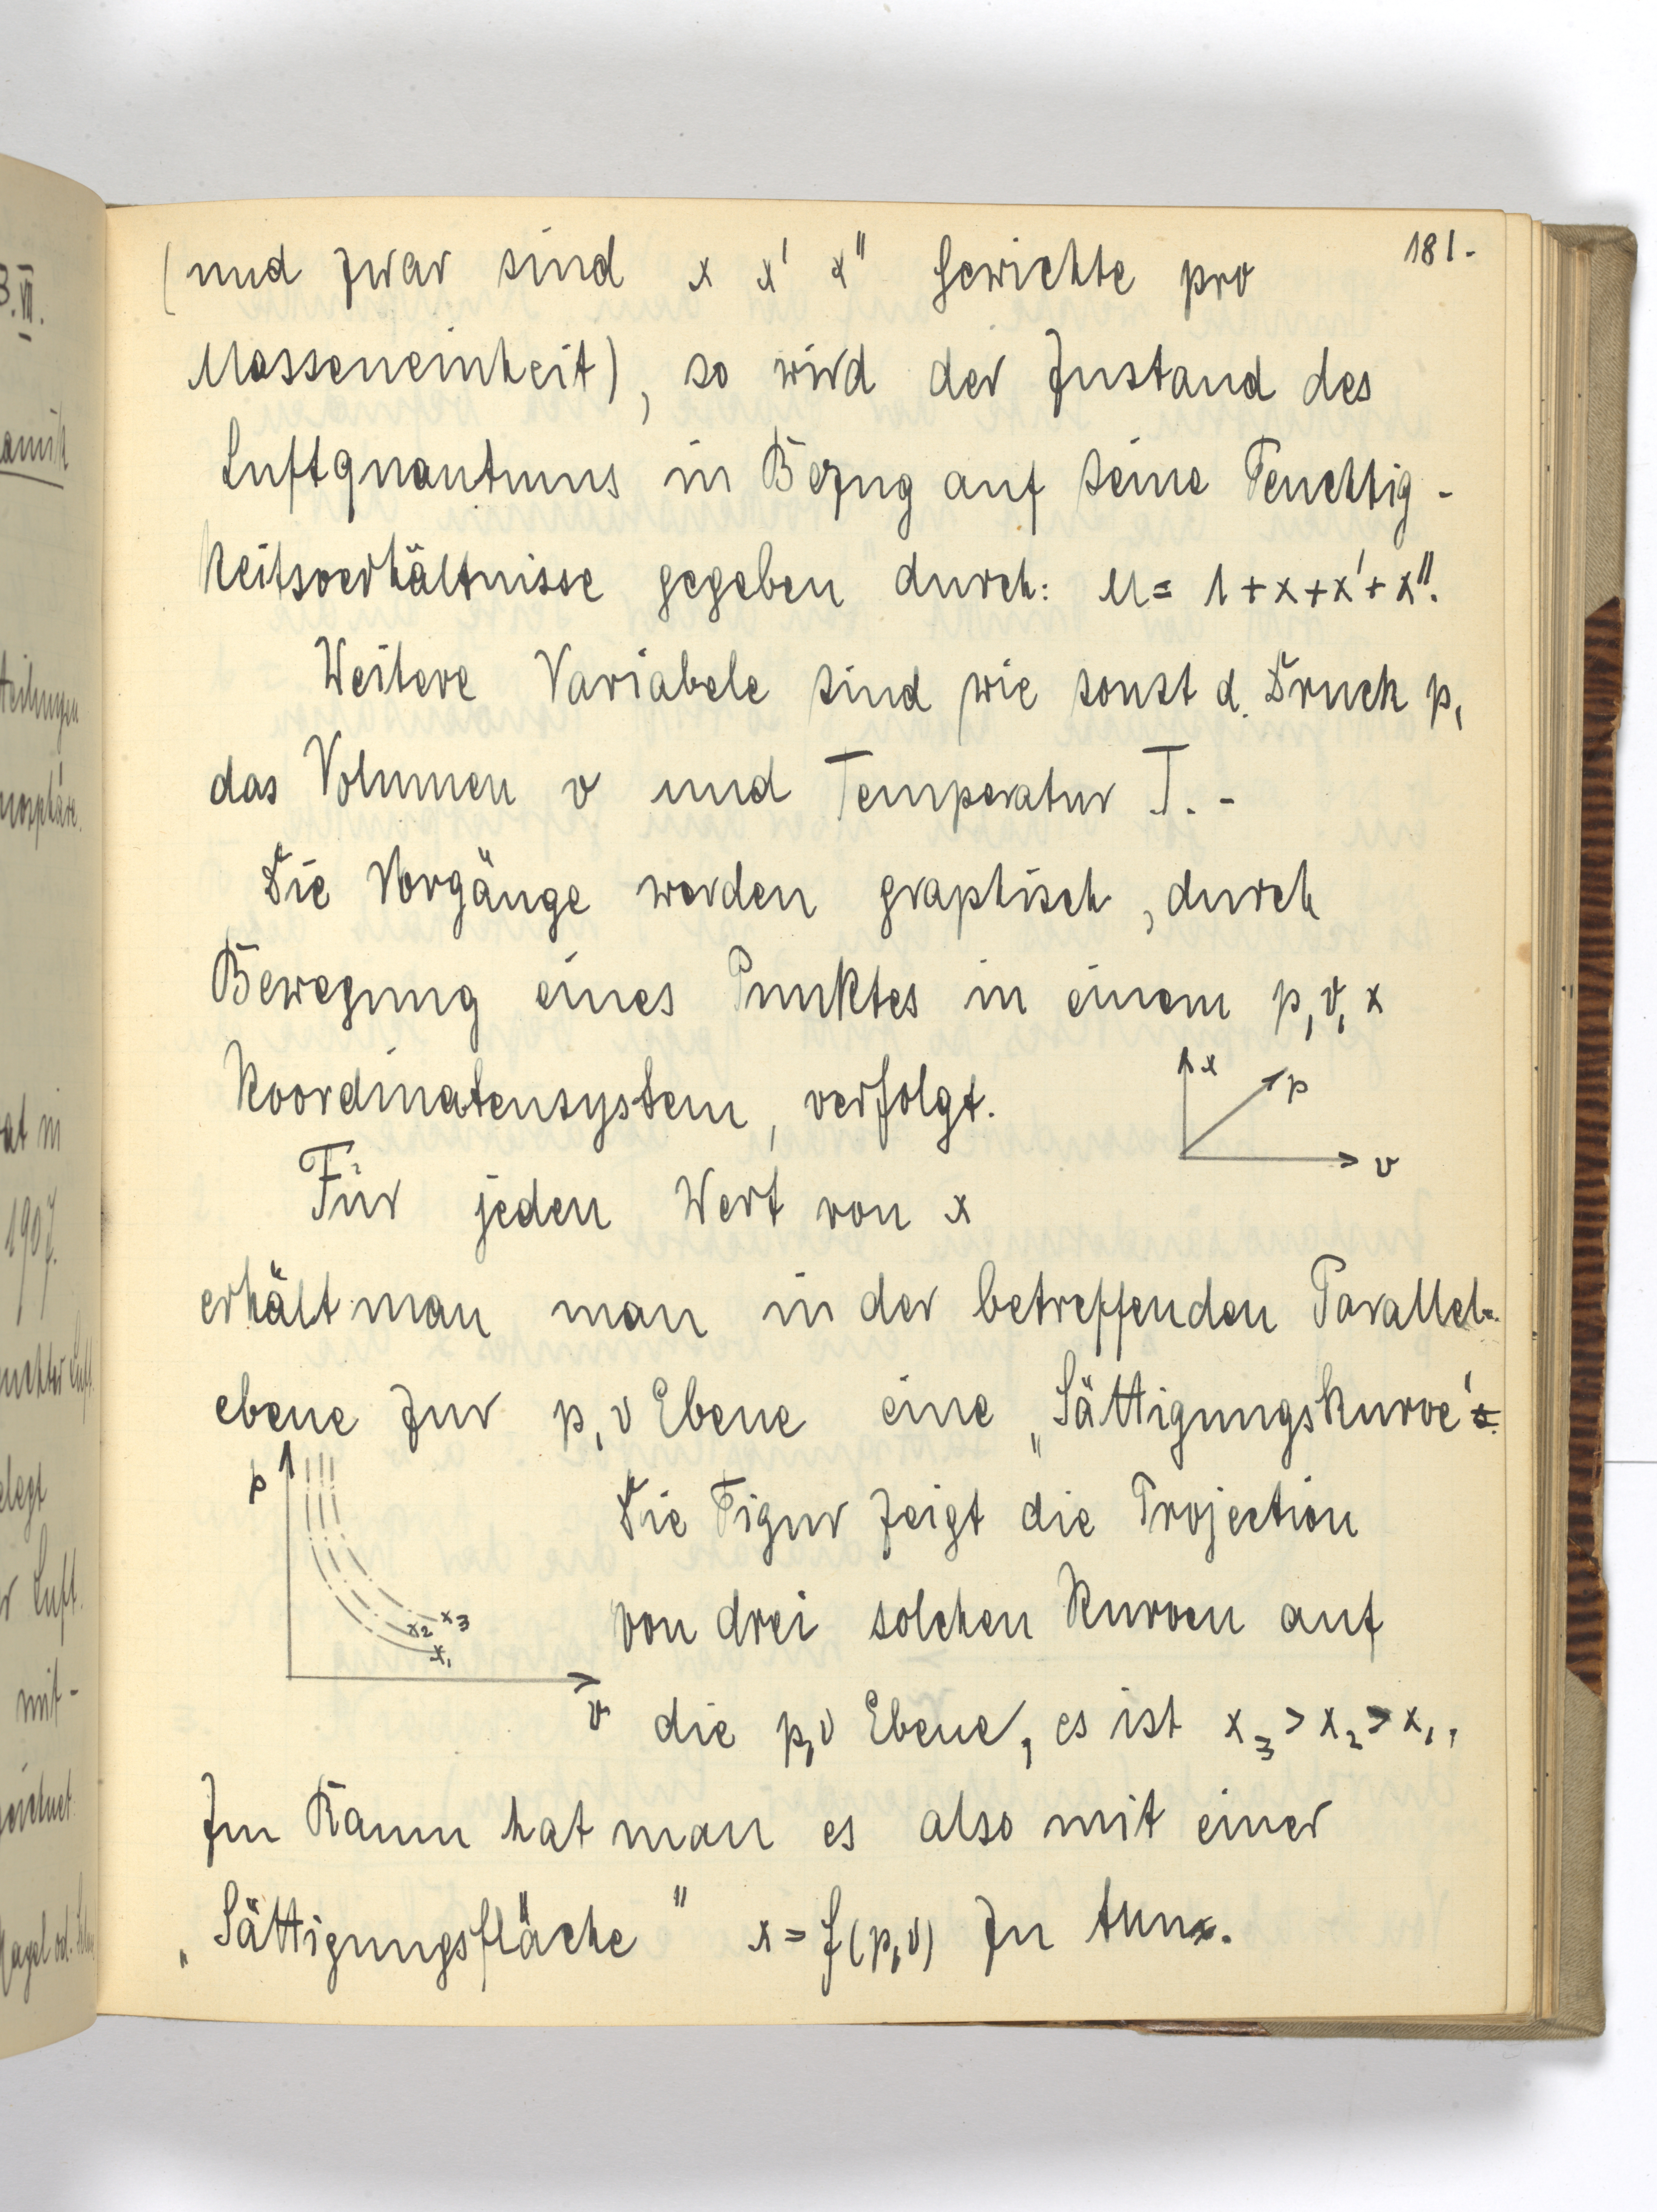 181.
(und zwar sind x x' x" Gewichte pro
Masseneinheit), so wird der Zustand des
Luftquantums in Bezug auf seine Feuchtig-
keitsverhältnisse gegeben durch: M = 1 + x + x' + x".
Weitere Variabele sind wie sonst d. Druck p,
das Volumen v und Temperatur T. -
Die Vorgänge werden graphisch, durch
Bewegung eines Punktes in einem p, v, x
Koordinatensystem, verfolgt.
x
p
v
Für jeden Wert von x
erhält man man in der betreffenden Parallel-
ebene zur p, v Ebene eine „Sättigungskurve".
p
x3
x2
x1
v
Die Figur zeigt die Projection
von drei solchen Kurven auf
die p,v Ebene, es ist x3 > x2 > x1,
Im Raum hat man es also mit einer
„Sättigungsfläche" x = f(p,v) zu tun.
3.VII.
amik
teilungen
mosphäre.
at in
1907.
uchter Luft
elegt
r Luft.
mit-
eichnet
Hagel od.